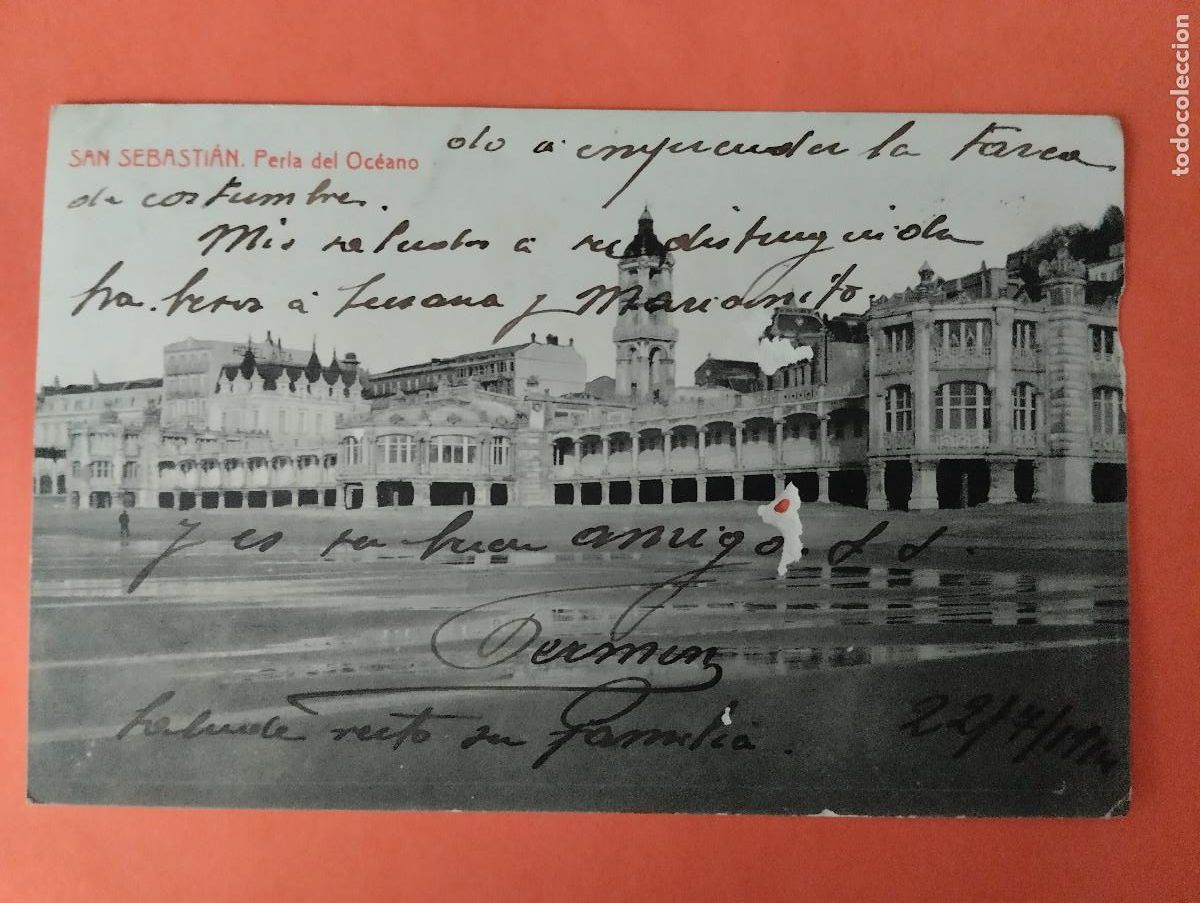 SAN SEBASTIÁN. Perla del Océano
do a emprender la tarea
de costumbre.
Mis saludos a su distinguida
fra. besos á Susana y Marianito.
y es su buen amigo. S S.
Fermin
Salude resto su familia.
22/7/1914
todocoleccion